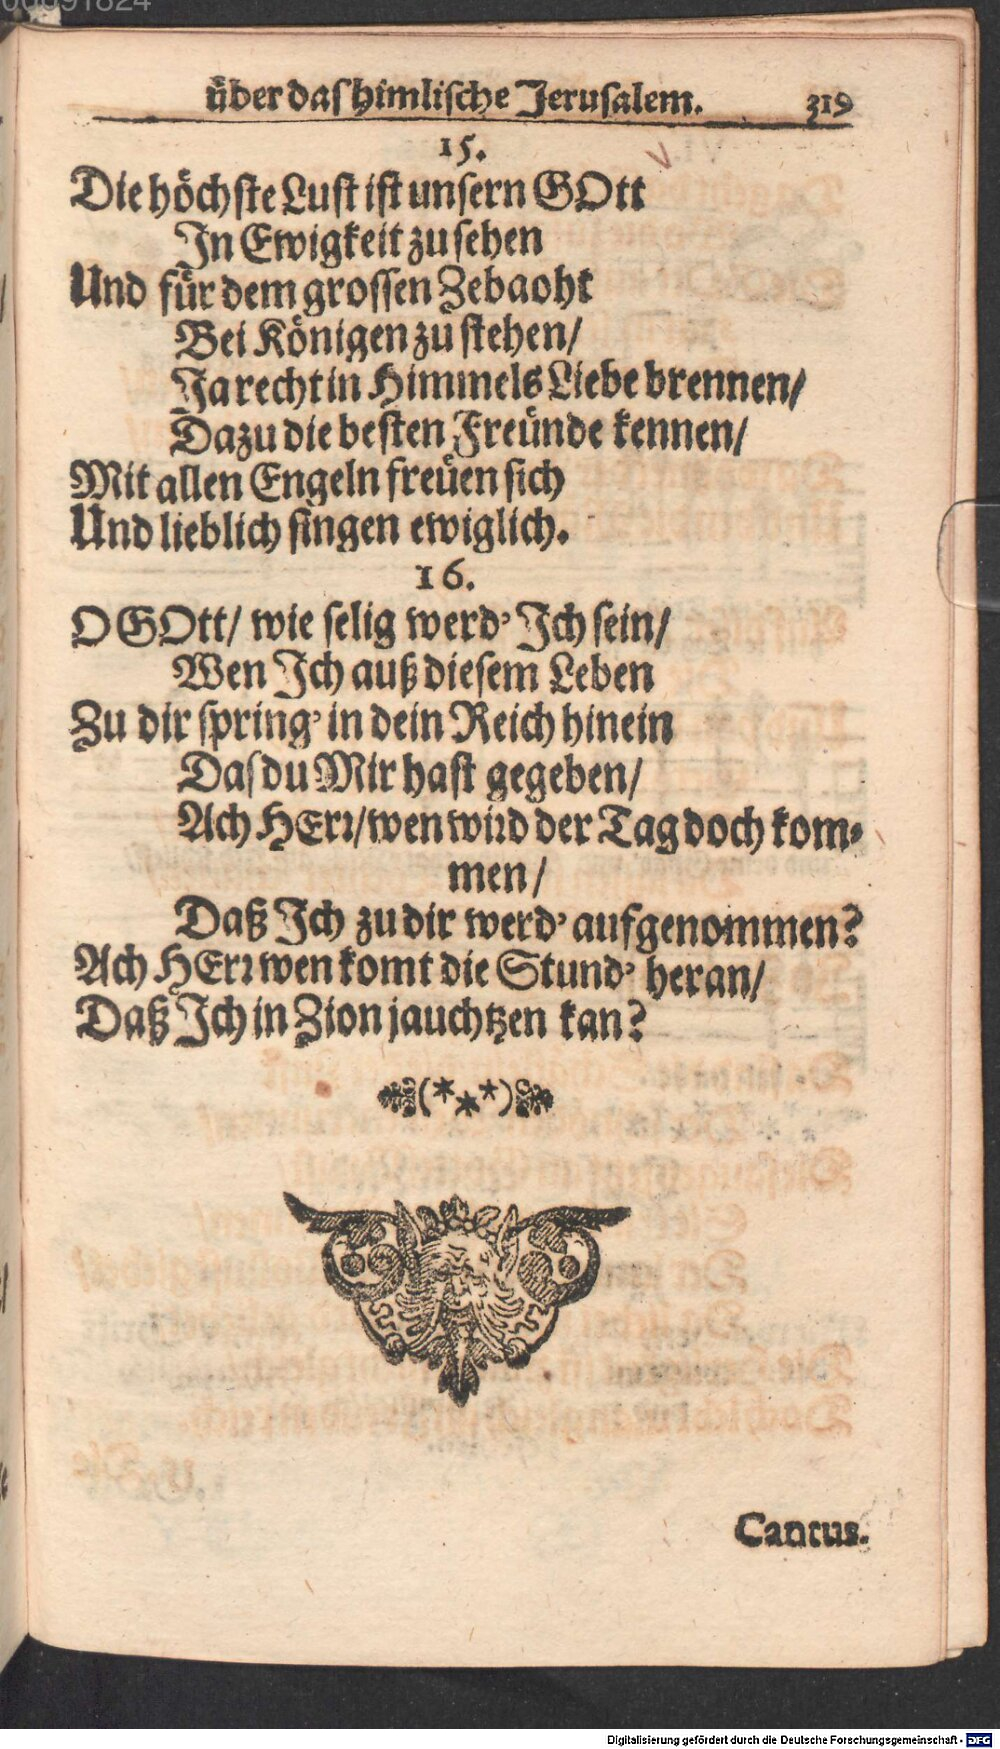 über das himlische Jerusalem. 319
15.
Die höchste Lust ist unsern GOtt
In Ewigkeit zu sehen
Und für dem grossen Zebaoht
Bei Königen zu stehen/
Ja recht in Himmels Liebe brennen/
Dazu die besten Freünde kennen/
Mit allen Engeln freüen sich
Und lieblich singen ewiglich.
16.
O GOtt/ wie selig werd' Ich sein/
Wen Ich auß diesem Leben
Zu dir spring' in dein Reich hinein
Das du Mir hast gegeben/
Ach HErr/ wen wird der Tag doch kom-
men/
Daß Ich zu dir werd' aufgenommen?
Ach HErr wen komt die Stund' heran/
Daß Ich in Zion jauchtzen kan?
(***)
Cantus.
Digitalisierung gefördert durch die Deutsche Forschungsgemeinschaft - DFG